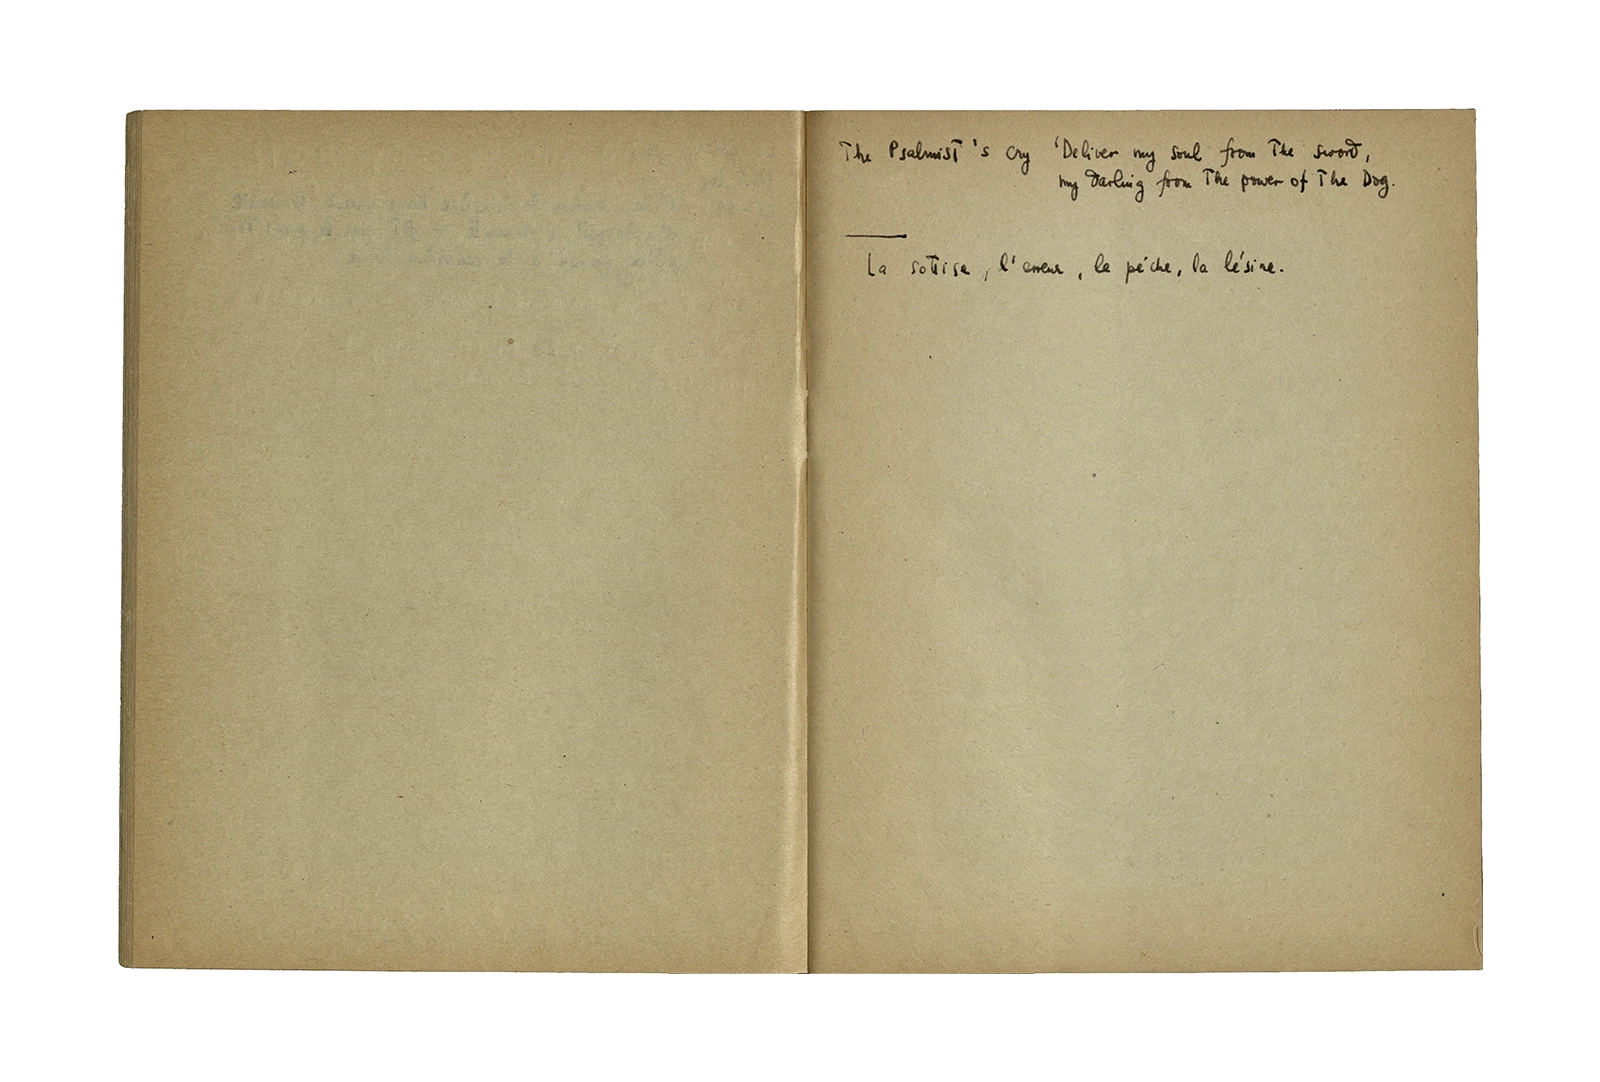 The Psalmist's cry 'Deliver my soul from the sword,
my darling from the power of the Dog.
La sottise, l'erreur, le péche, la lésine.